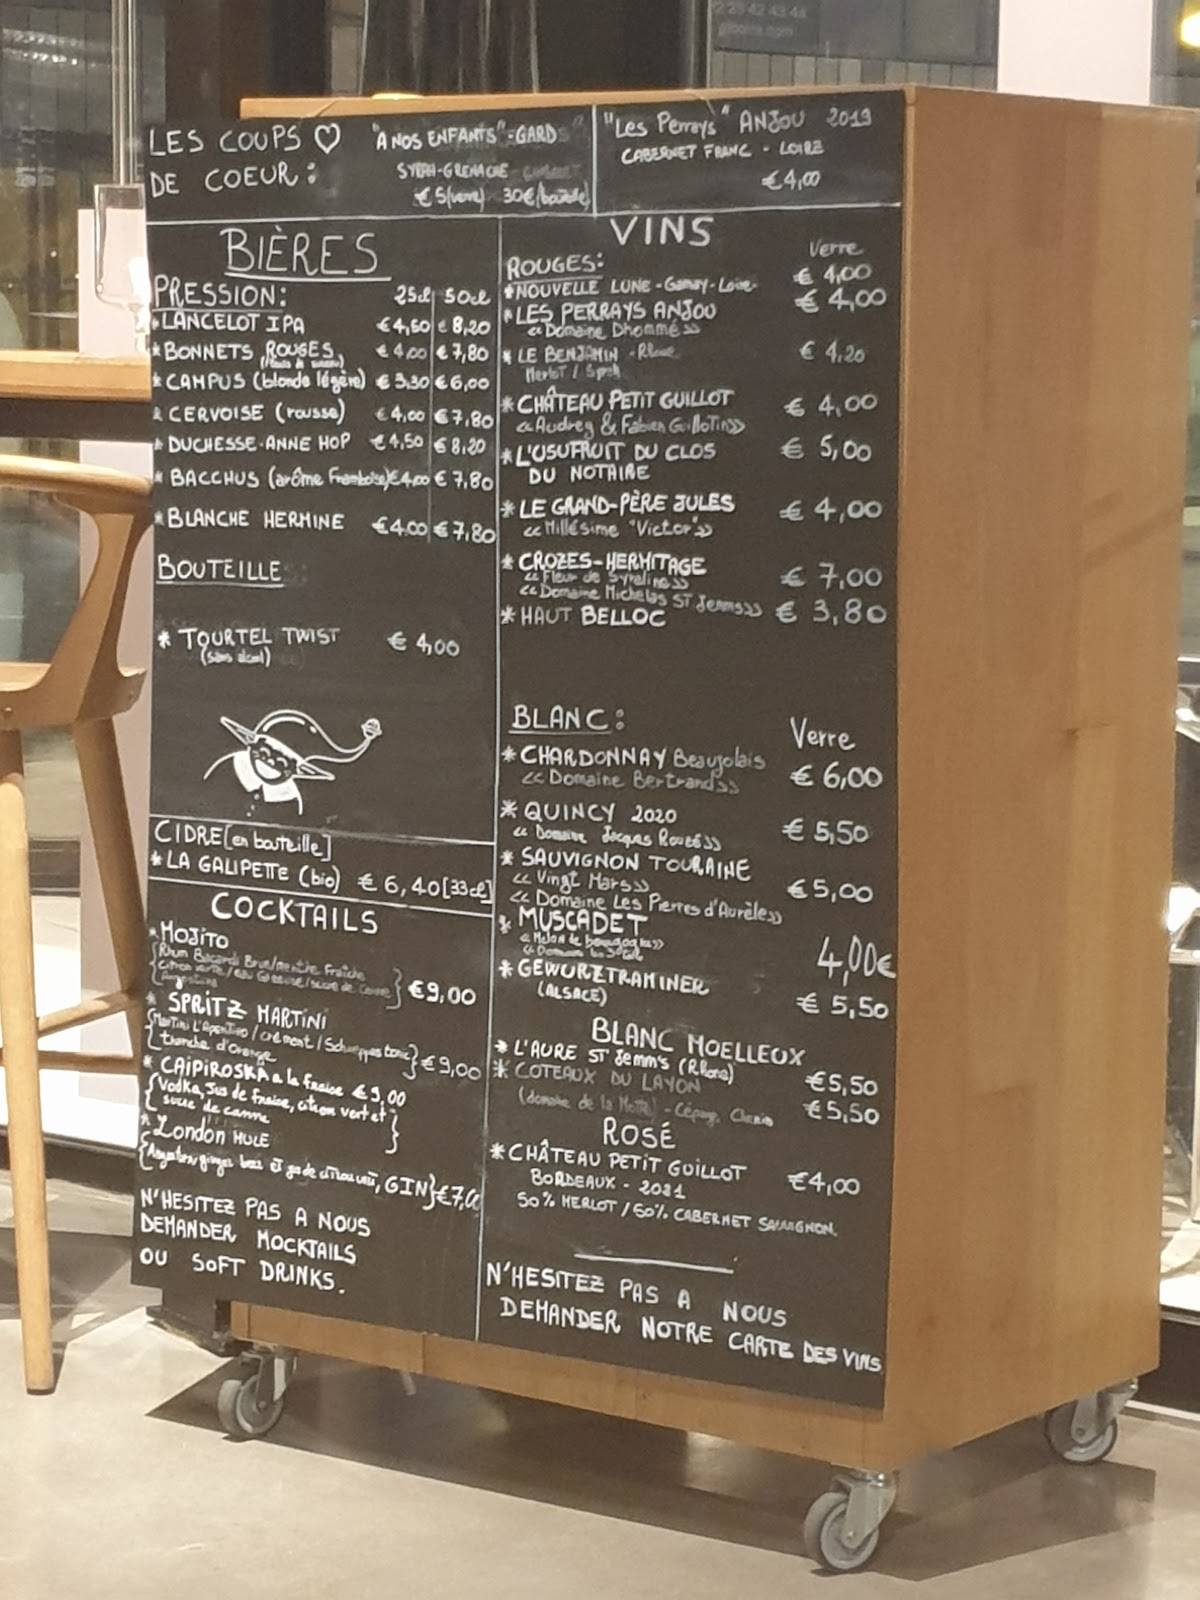 LES COUPS ♡
DE COEUR:
"A NOS ENFANTS"-GARD
SYRAH-GRENACHE
€5(verre) 30€(bouteille)
"Les Perrays" ANJOU 2019
CABERNET FRANC - LOIRE
€4,00
BIÈRES
PRESSION: 25cl 50cl
*LANCELOT IPA €4,60 € 8,20
*BONNETS ROUGES €4,00 €7,80
*CAMPUS (blonde légère) €3,30 €6,00
*CERVOISE (rousse) €4,00 €7,80
*DUCHESSE-ANNE HOP €4,50 €8,20
*BACCHUS (arôme Framboise) €4,00 €7,80
*BLANCHE HERMINE €4.00 €7,80
BOUTEILLE
* TOURTEL TWIST € 4,00
(sans alcool)
CIDRE[en bouteille]
*LA GALIPETTE (bio) €6,40[33cl]
COCKTAILS
*MOJITO
{Rhum Bacardi menthe Fraîche
citron verte / eau Gazeuse/sucre de Canne
Angostura} €9,00
* SPRITZ MARTINI
{Martini L'Aperitivo / crémant / Schweppes tonic
tranche d'Orange} €9,00
* CAIPIROSKA a la fraise €9,00
{Vodka, Jus de Fraise, citron vert et
sucre de canne}
* London MULE
{Angostura, ginger beer et jus de citron vert, GIN}€7,00
N'HESITEZ PAS A NOUS
DEMANDER MOCKTAILS
OU SOFT DRINKS.
VINS
ROUGES: Verre
*NOUVELLE LUNE-Gamay-Loire- € 4,00
*LES PERRAYS ANJOU € 4,00
«Domaine Dhommé»
* LE BENJAMIN - Rhone € 4,20
Merlot / Syrah
*CHÂTEAU PETIT GUILLOT € 4,00
«Audrey & Fabien Guillotin»
*L'USUFRUIT DU CLOS € 5,00
DU NOTAIRE
*LE GRAND-PÈRE JULES € 4,00
«Millésime "Victor"»
*CROZES-HERMITAGE € 7,00
«Fleur de Syraline»
«Domaine Michelas ST Jemms»
*HAUT BELLOC € 3,80
BLANC: Verre
*CHARDONNAY Beaujolais € 6,00
«Domaine Bertrand»
*QUINCY 2020 €5,50
«Domaine Jacques Rouzé»
*SAUVIGNON TOURAINE €5,00
«Vingt Mars»
«Domaine Les Pierres d'Aurèle»
*MUSCADET 4,00€
«Melon de bourgogne»
*GEWURZTRAMINER € 5,50
(ALSACE)
BLANC MOELLEUX
*L'AURE ST Jemm's (Rhone) €5,50
*COTEAUX DU LAYON €5,50
(domaine de la Motte) - Cépage Chenin
ROSÉ
*CHÂTEAU PETIT GUILLOT €4,00
BORDEAUX - 2021
50% MERLOT / 50% CABERNET SAUVIGNON
N'HESITEZ PAS A NOUS
DEMANDER NOTRE CARTE DES VINS